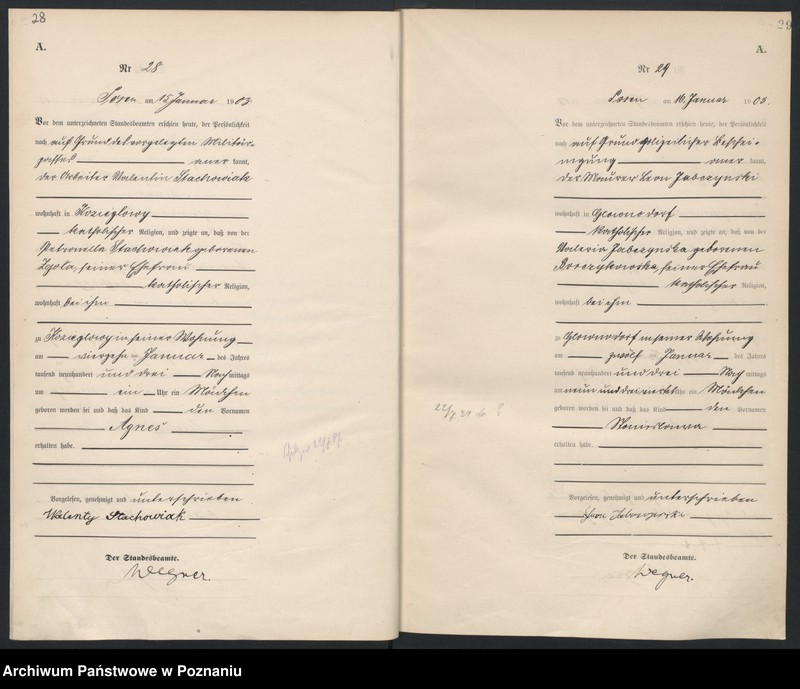 28
A.
Nr 28
Posen am 15 Januar 1903
Vor dem unterzeichneten Standesbeamten erschien heute, der Persönlichkeit
nach auf Grund des vorgelegten Militär-
passes aner kannt,
der Arbeiter Valentin Stachowiak
wohnhaft in Kozieglowy
katholischer Religion, und zeigte an, daß von der
Petronella Stachowiak geborenen
Zgola, seiner Ehefrau
katholischer Religion,
wohnhaft bei ihm
zu Kozieglowy in seiner Wohnung
am vierzehn ten Januar des Jahres
tausend neunhundert und drei Nach mittags
um ein Uhr ein Mädchen
geboren worden sei und daß das Kind den Vornamen
Agnes
erhalten habe.
Vorgelesen, genehmigt und unterschrieben
Walenty Stachowiak
Der Standesbeamte.
Wegner.
29
A.
Nr 29
Posen am 16. Januar 1903.
Vor dem unterzeichneten Standesbeamten erschien heute, der Persönlichkeit
nach auf Grund polizeilicher Beschei-
nigung aner kannt,
der Maurer Leon Jabczynski
wohnhaft in Glowno Dorf
katholischer Religion, und zeigte an, daß von der
Valeria Jabczynska geborenen
seiner Ehefrau
katholischer Religion,
wohnhaft bei ihm
zu Glowno Dorf in seiner Wohnung
am zwölf ten Januar des Jahres
tausend neunhundert und drei Nach mittags
um neun und drei viertel Uhr ein Mädchen
geboren worden sei und daß das Kind den Vornamen
Stanislawa
erhalten habe.
Vorgelesen, genehmigt und unterschrieben
Leon
Der Standesbeamte.
Wegner.
Archiwum Państwowe w Poznaniu